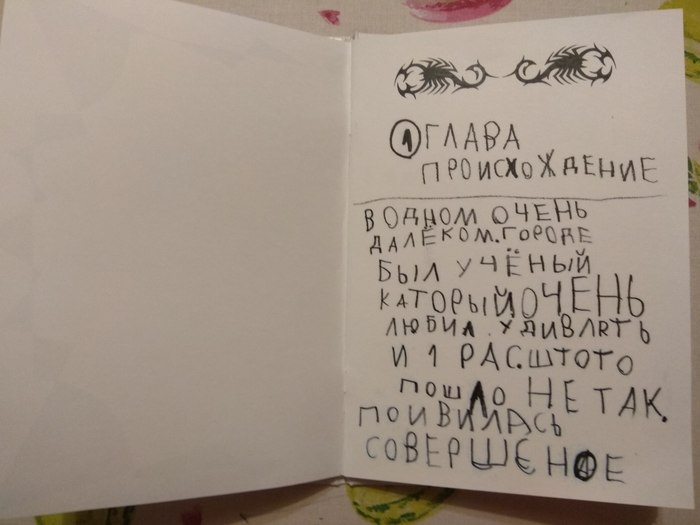 1 ГЛАВА
ПРОИСХОЖДЕНИЕ
В ОДНОМ ОЧЕНЬ
ДАЛЁКОМ.ГОРОДЕ
БЫЛ УЧЁНЫЙ
КАТОРЫЙ ОЧЕНЬ
ЛЮБИЛ.УДИВЛЯТЬ
И 1 РАС.ШТОТО
ПОШЛО НЕ ТАК.
ПОИВИЛАСЬ
СОВЕРШЕНОЕ